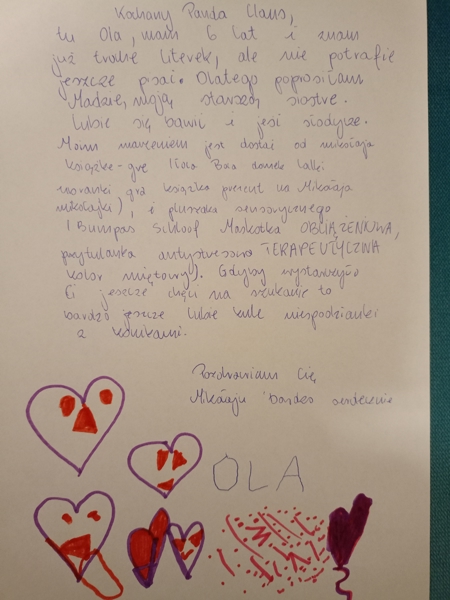 Kochany Panda Claus,
tu Ola, mam 6 lat i znam
już trochę literek, ale nie potrafię
jeszcze pisać. Dlatego poprosiłam
Madzię, moją starszą siostrę.
Lubię się bawić i jeść słodycze.
Moim marzeniem jest dostać od mikołaja
książkę-grę (Lola Baa domek lalki
maskotka gra książka prezent na Mikołaja
mikołajki), i pluszaka sensorycznego
(Bumpas Schloof Maskotka OBCIĄŻENIOWA,
przytulanka antystresowa TERAPEUTYCZNA
kolor miętowy). Gdyby wystarczyło
Ci jeszcze chęci na szukanie to
bardzo jeszcze lubię kule niespodzianki
z konikami.
Pozdrawiam Cię
Mikołaju bardzo serdecznie
OLA